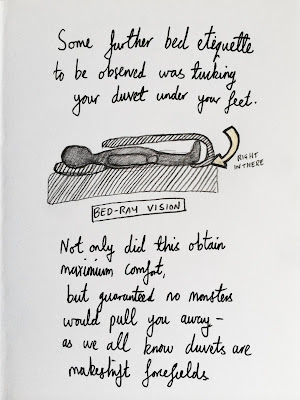 Some further bed etiquette
to be observed was tucking
your duvet under your feet.
RIGHT
IN THERE
BED-RAY VISION
Not only did this obtain
maximium comfort,
but guaranteed no monsters
would pull you away -
as we all know duvets are
makeshift forcefields